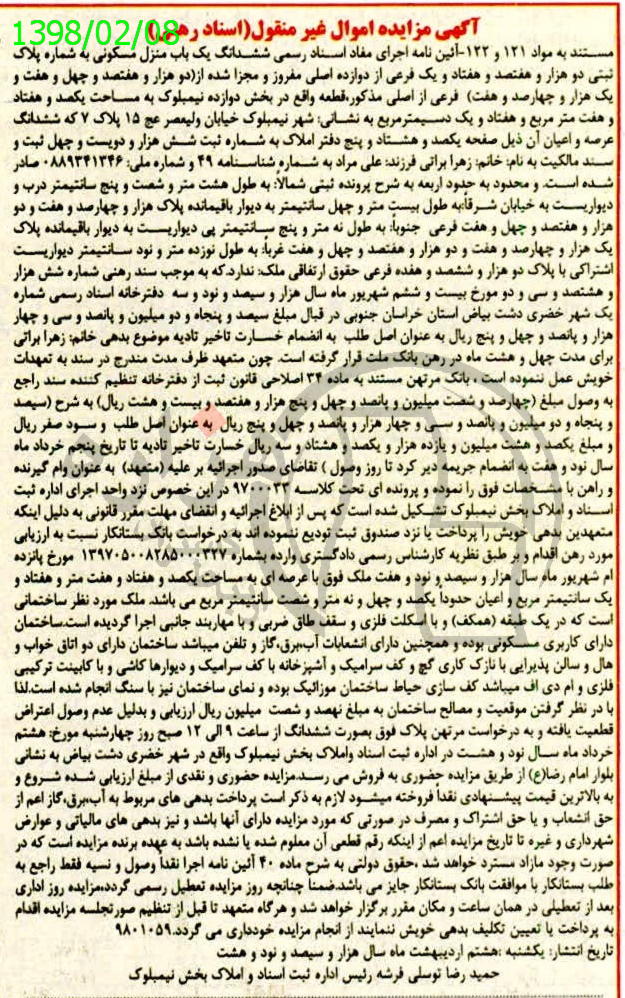 1398/02/08
آگهی مزایده اموال غیر منقول(اسناد رهنی)
مستند به مواد ۱۲۱ و ۱۲۲-آئین نامه اجرای مفاد اسناد رسمی ششدانگ یک باب منزل مسکونی به شماره پلاک
ثبتی دو هزار و هفتصد و هفتاد و یک فرعی از دوازده اصلی مفروز و مجزا شده از(دو هزار و هفتصد و چهل و هفت و
یک هزار و چهارصد و هفت) فرعی از اصلی مذکور،قطعه واقع در بخش دوازده نیمبلوک به مساحت یکصد و هفتاد
و هفت متر مربع و هفتاد و یک دسیمترمربع به نشانی: شهر نیمبلوک خیابان ولیعصر عج ۱۵ پلاک ۷ که ششدانگ
عرصه و اعیان آن ذیل صفحه یکصد و هشتاد و پنج دفتر املاک به شماره ثبت شش هزار و دویست و چهل ثبت و
سند مالکیت به نام: خانم: زهرا براتی فرزند: علی مراد به شماره شناسنامه ۴۹ و شماره ملی: ۰۸۸۹۳۴۱۳۴۶ صادر
شده است. و محدود به حدود اربعه به شرح پرونده ثبتی شمالاً: به طول هشت متر و شصت و پنج سانتیمتر درب و
دیواریست به خیابان شرقاً:به طول بیست متر و چهل سانتیمتر به دیوار باقیمانده پلاک هزار و چهارصد و هفت و دو
هزار و هفتصد و چهل و هفت فرعی جنوباً: به طول نه متر و پنج سانتیمتر پی دیواریست به دیوار باقیمانده پلاک
یک هزار و چهارصد و هفت و دو هزار و هفتصد و چهل و هفت غرباً: به طول نوزده متر و نود سانتیمتر دیواریست
اشتراکی با پلاک دو هزار و ششصد و هفده فرعی حقوق ارتفاقی ملک: ندارد.که به موجب سند رهنی شماره شش هزار
و هشتصد و سی و دو مورخ بیست و ششم شهریور ماه سال هزار و سیصد و نود و سه دفترخانه اسناد رسمی شماره
یک شهر خضری دشت بیاض استان خراسان جنوبی در قبال مبلغ سیصد و پنجاه و دو میلیون و پانصد و سی و چهار
هزار و پانصد و چهل و پنج ریال به عنوان اصل طلب به انضمام خسارت تاخیر تادیه موضوع بدهی خانم: زهرا براتی
برای مدت چهل و هشت ماه در رهن بانک ملت قرار گرفته است. چون متعهد ظرف مدت مندرج در سند به تعهدات
خویش عمل ننموده است ، بانک مرتهن مستند به ماده ۳۴ اصلاحی قانون ثبت از دفترخانه تنظیم کننده سند راجع
به وصول مبلغ (چهارصد و شصت میلیون و پانصد و چهل و پنج هزار و هفتصد و بیست و هشت ریال) به شرح (سیصد
و پنجاه و دو میلیون و پانصد و سی و چهار هزار و پانصد و چهل و پنج ریال به عنوان اصل طلب و سود صفر ریال
و مبلغ یکصد و هشت میلیون و یازده هزار و یکصد و هشتاد و سه ریال خسارت تاخیر تادیه تا تاریخ پنجم خرداد ماه
سال نود و هفت به انضمام جریمه دیر کرد تا روز وصول ) تقاضای صدور اجرائیه بر علیه (متعهد) به عنوان وام گیرنده
و راهن با مشخصات فوق را نموده و پرونده ای تحت کلاسه ۹۷۰۰۰۳۳ در این خصوص نزد واحد اجرای اداره ثبت
اسناد و املاک بخش نیمبلوک تشکیل شده است که پس از ابلاغ اجرائیه و انقضای مهلت مقرر قانونی به دلیل اینکه
متعهدین بدهی خویش را پرداخت یا نزد صندوق ثبت تودیع ننموده اند به درخواست بانک بستانکار نسبت به ارزیابی
مورد رهن اقدام و بر طبق نظریه کارشناس رسمی دادگستری وارده بشماره ۱۳۹۷۰۵۰۰۸۲۸۵۰۰۰۳۲۷ مورخ پانزده
ام شهریور ماه سال هزار و سیصد و نود و هفت ملک فوق با عرصه ای به مساحت یکصد و هفتاد و هفت متر و هفتاد و
یک سانتیمتر مربع و اعیان حدوداً یکصد و چهل و نه متر و شصت سانتیمتر مربع می باشد. ملک مورد نظر ساختمانی
است که در یک طبقه (همکف) و با اسکلت فلزی و سقف طاق ضربی و با مهاربند جانبی اجرا گردیده است.ساختمان
دارای کاربری مسکونی بوده و همچنین دارای انشعابات آب،برق،گاز و تلفن میباشد ساختمان دارای دو اتاق خواب و
هال و سالن پذیرایی با نازک کاری گچ و کف سرامیک و آشپزخانه با کف سرامیک و دیوارها کاشی و با کابینت ترکیبی
فلزی و ام دی اف میباشد کف سازی حیاط ساختمان موزائیک بوده و نمای ساختمان نیز با سنگ انجام شده است.لذا
با در نظر گرفتن موقعیت و مصالح ساختمان به مبلغ نهصد و شصت میلیون ریال ارزیابی و بدلیل عدم وصول اعتراض
قطعیت یافته و به درخواست مرتهن پلاک فوق بصورت ششدانگ از ساعت ۹ الی ۱۲ صبح روز چهارشنبه مورخ: هشتم
خرداد ماه سال نود و هشت در اداره ثبت اسناد واملاک بخش نیمبلوک واقع در شهر خضری دشت بیاض به نشانی
بلوار امام رضا(ع) از طریق مزایده حضوری به فروش می رسد.مزایده حضوری و نقدی از مبلغ ارزیابی شده شروع و
به بالاترین قیمت پیشنهادی نقداً فروخته میشود لازم به ذکر است پرداخت بدهی های مربوط به آب،برق،گاز اعم از
حق انشعاب و یا حق اشتراک و مصرف در صورتی که مورد مزایده دارای آنها باشد و نیز بدهی های مالیاتی و عوارض
شهرداری و غیره تا تاریخ مزایده اعم از اینکه رقم قطعی آن معلوم شده یا نشده باشد به عهده برنده مزایده است که در
صورت وجود مازاد مسترد خواهد شد ،حقوق دولتی به شرح ماده ۴۰ آئین نامه اجرا نقداً وصول و نسیه فقط راجع به
طلب بستانکار با موافقت بانک بستانکار جایز می باشد.ضمناً چنانچه روز مزایده تعطیل رسمی گردد،مزایده روز اداری
بعد از تعطیلی در همان ساعت و مکان مقرر برگزار خواهد شد و هرگاه متعهد تا قبل از تنظیم صورتجلسه مزایده اقدام
به پرداخت یا تعیین تکلیف بدهی خویش ننمایند از انجام مزایده خودداری می گردد.۹۸۰۱۰۵۹
تاریخ انتشار: یکشنبه :هشتم اردیبهشت ماه سال هزار و سیصد و نود و هشت
حمید رضا توسلی فرشه رئیس اداره ثبت اسناد و املاک بخش نیمبلوک